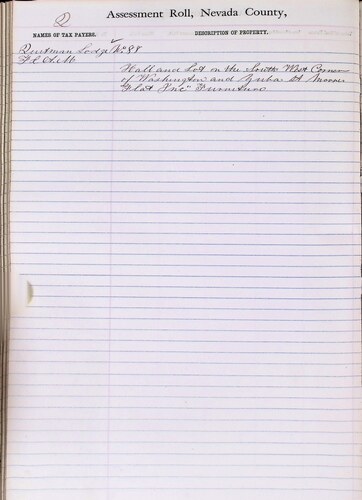 Q
Assessment Roll, Nevada County,
NAMES OF TAX PAYERS.
DESCRIPTION OF PROPERTY.
Quitman Lodge No 88
F & A M
Hall and Lot on the South West Corner
of Washington and Yuba St Moores
Flat Inc" Furniture